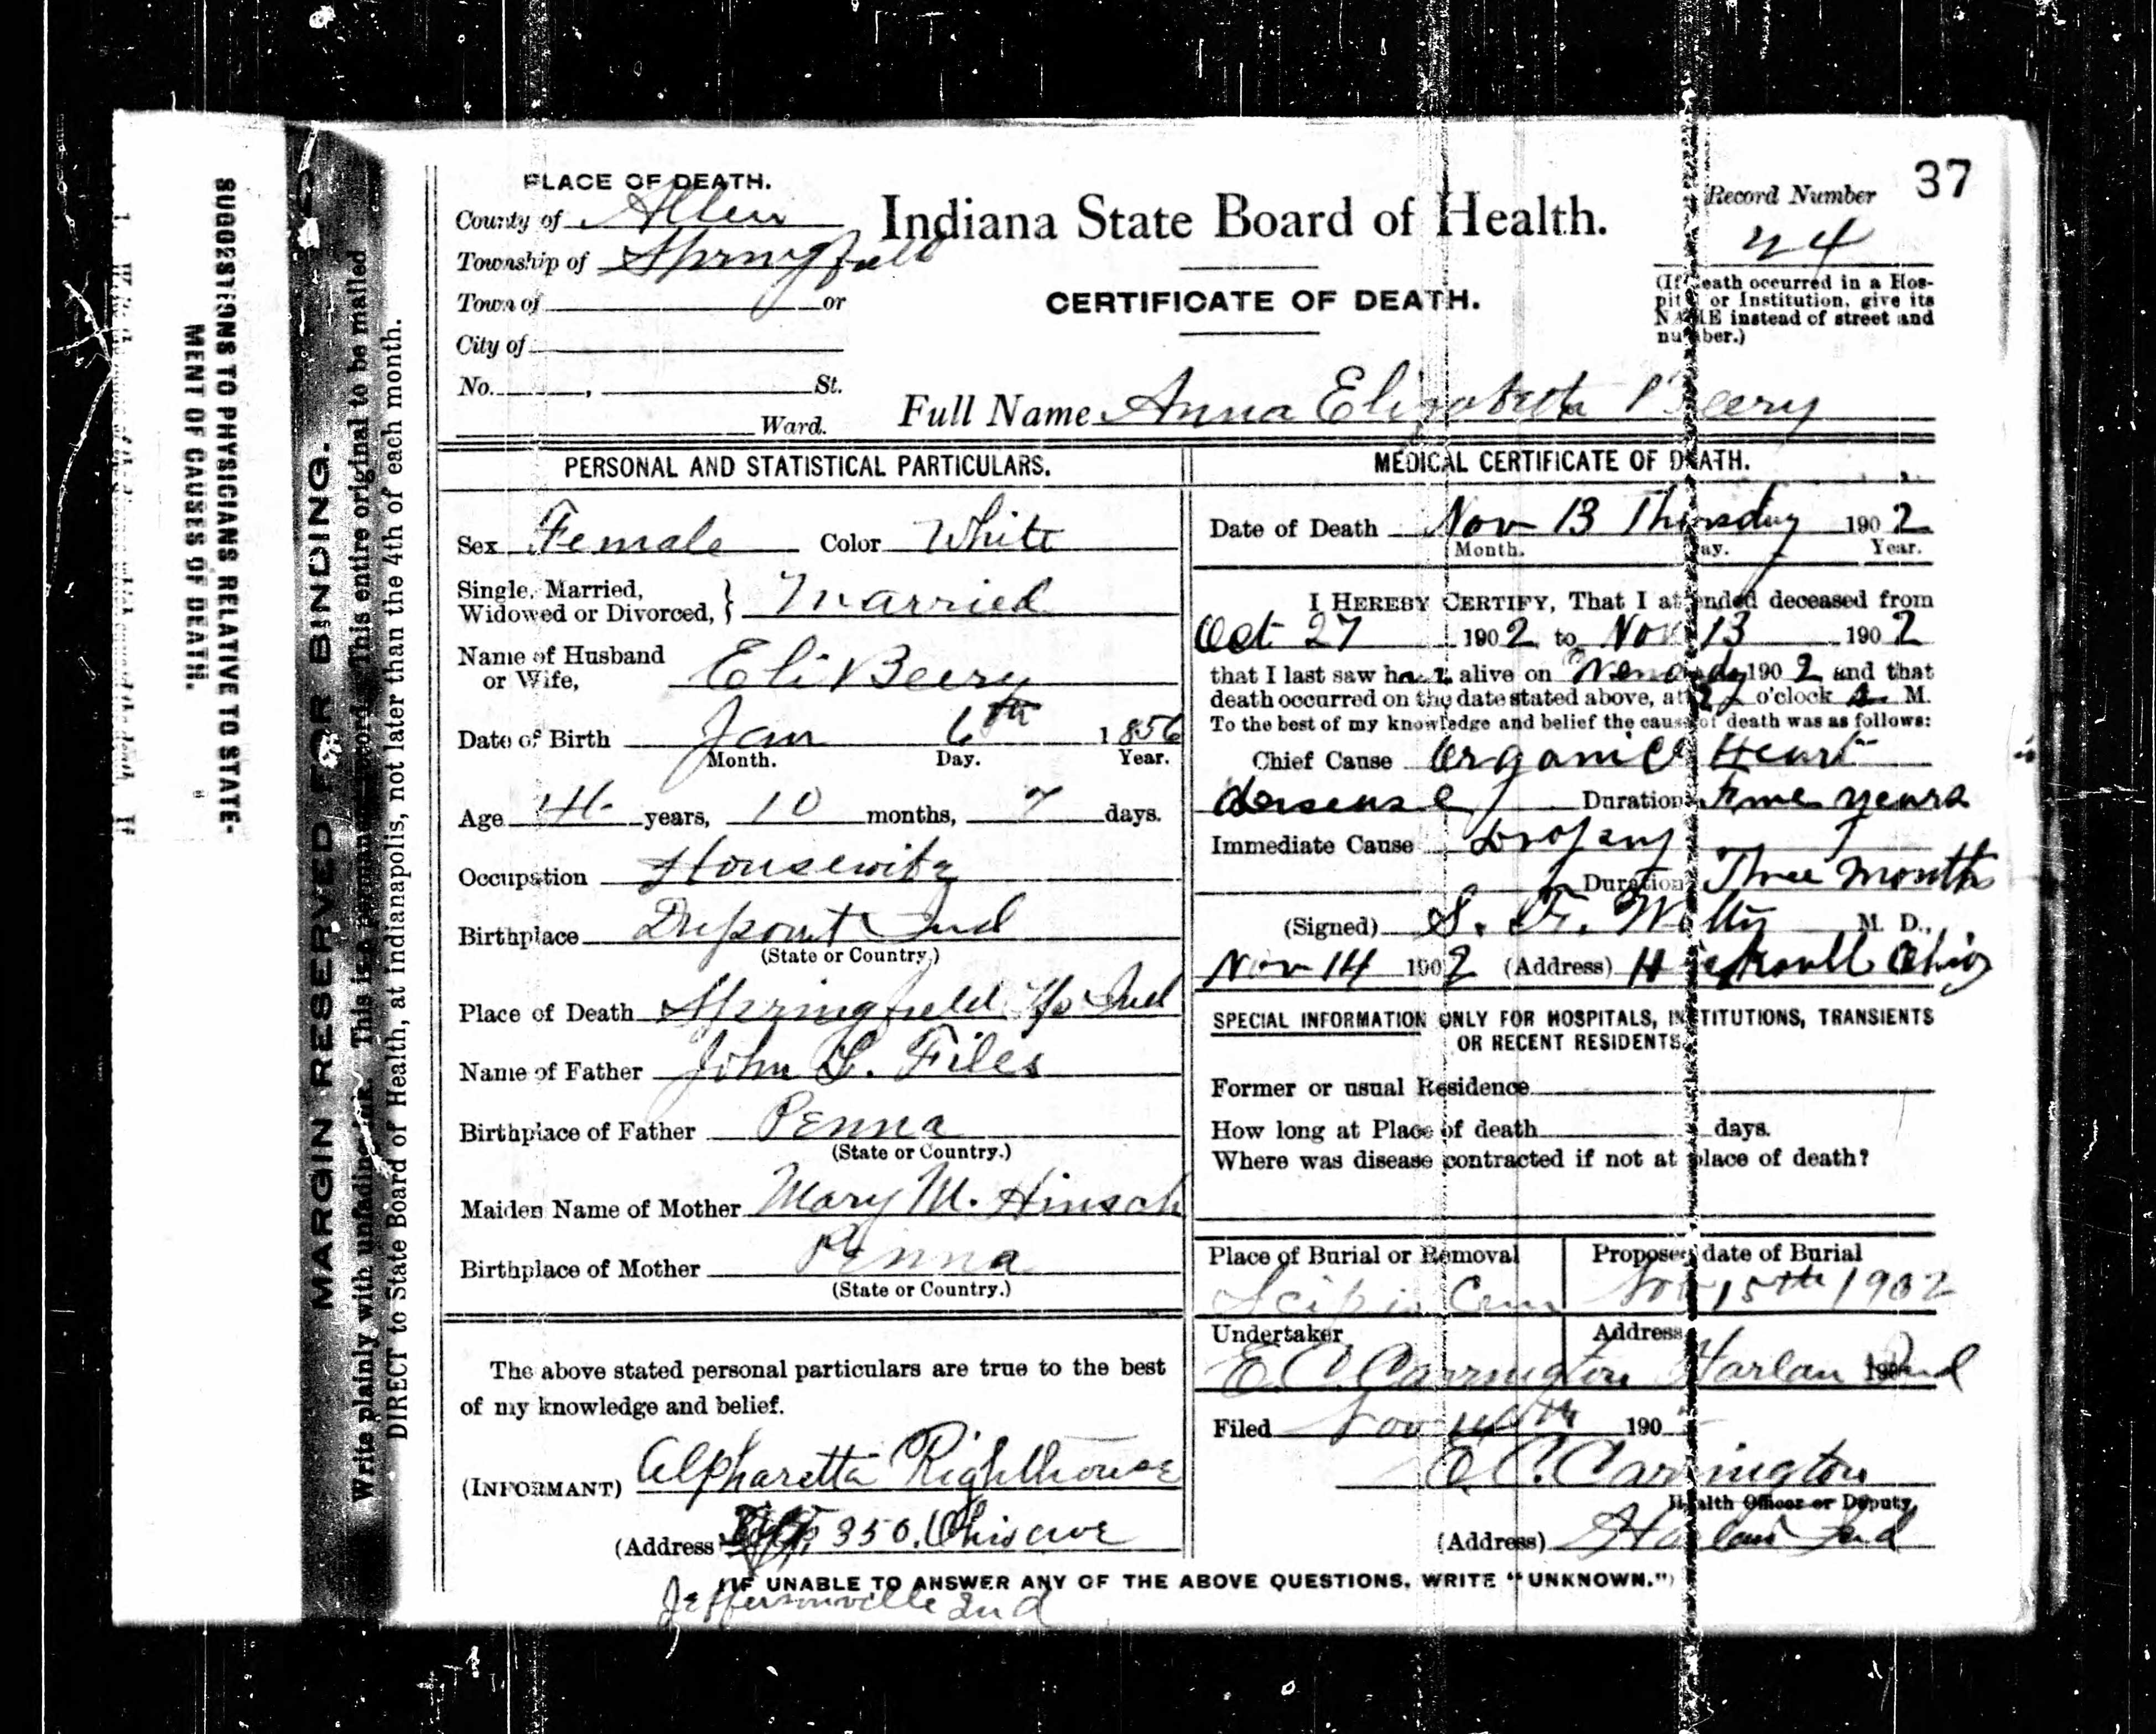 SUGGESTIONS TO PHYSICIANS RELATIVE TO STATE-
MENT OF CAUSES OF DEATH.
MARGIN RESERVED FOR BINDING.
Write plainly with unfading ink. This is a permanent record. This entire original to be mailed
DIRECT to State Board of Health, at Indianapolis, not later than the 4th of each month.
37
PLACE OF DEATH.
County of Allen
Township of Springfield
Town of or
City of
No. , St.
Ward.
Indiana State Board of Health.
CERTIFICATE OF DEATH.
Record Number
24
(If death occurred in a Hos-
pital or Institution, give its
NAME instead of street and
number.)
Full Name Anna Elizabeth Beery
PERSONAL AND STATISTICAL PARTICULARS.
Sex Female Color White
Single, Married,
Widowed or Divorced, } Married
Name of Husband
or Wife, Eli Beery
Date of Birth Jan 6th 1856
Month. Day. Year.
Age years, 10 months, 7 days.
Occupation Housewife
Birthplace Dupont Ind
(State or Country.)
Place of Death Springfield Tp Ind
Name of Father John S. Files
Birthplace of Father Penna
(State or Country.)
Maiden Name of Mother Mary M. Hinsch
Birthplace of Mother Penna
(State or Country.)
The above stated personal particulars are true to the best
of my knowledge and belief.
(INFORMANT) Alpharetta Righthouse
(Address 350. Ohio ave
Jeffersonville Ind
MEDICAL CERTIFICATE OF DEATH.
Date of Death Nov 13 Thursday 1902
Month. Day. Year.
I HEREBY CERTIFY, That I attended deceased from
Oct 27 1902 to Nov 13 1902
that I last saw her alive on 1902 and that
death occurred on the date stated above, at o'clock M.
To the best of my knowledge and belief the cause of death was as follows:
Chief Cause Organic Heart
desease Duration years
Immediate Cause Dropsy
Duration Three Months
(Signed) S. F. Welty M. D.,
Nov 14 1902 (Address) Ohio
SPECIAL INFORMATION ONLY FOR HOSPITALS, INSTITUTIONS, TRANSIENTS
OR RECENT RESIDENTS.
Former or usual Residence
How long at Place of death days.
Where was disease contracted if not at place of death?
Place of Burial or Removal Proposed date of Burial
Scipio Cem Nov 15th 1902
Undertaker Address
E. C. Carrington Harlan Ind
Filed Nov 14th 190
E. C. Carrington
Health Officer or Deputy,
(Address) Harlan Ind
(IF UNABLE TO ANSWER ANY OF THE ABOVE QUESTIONS, WRITE "UNKNOWN.")